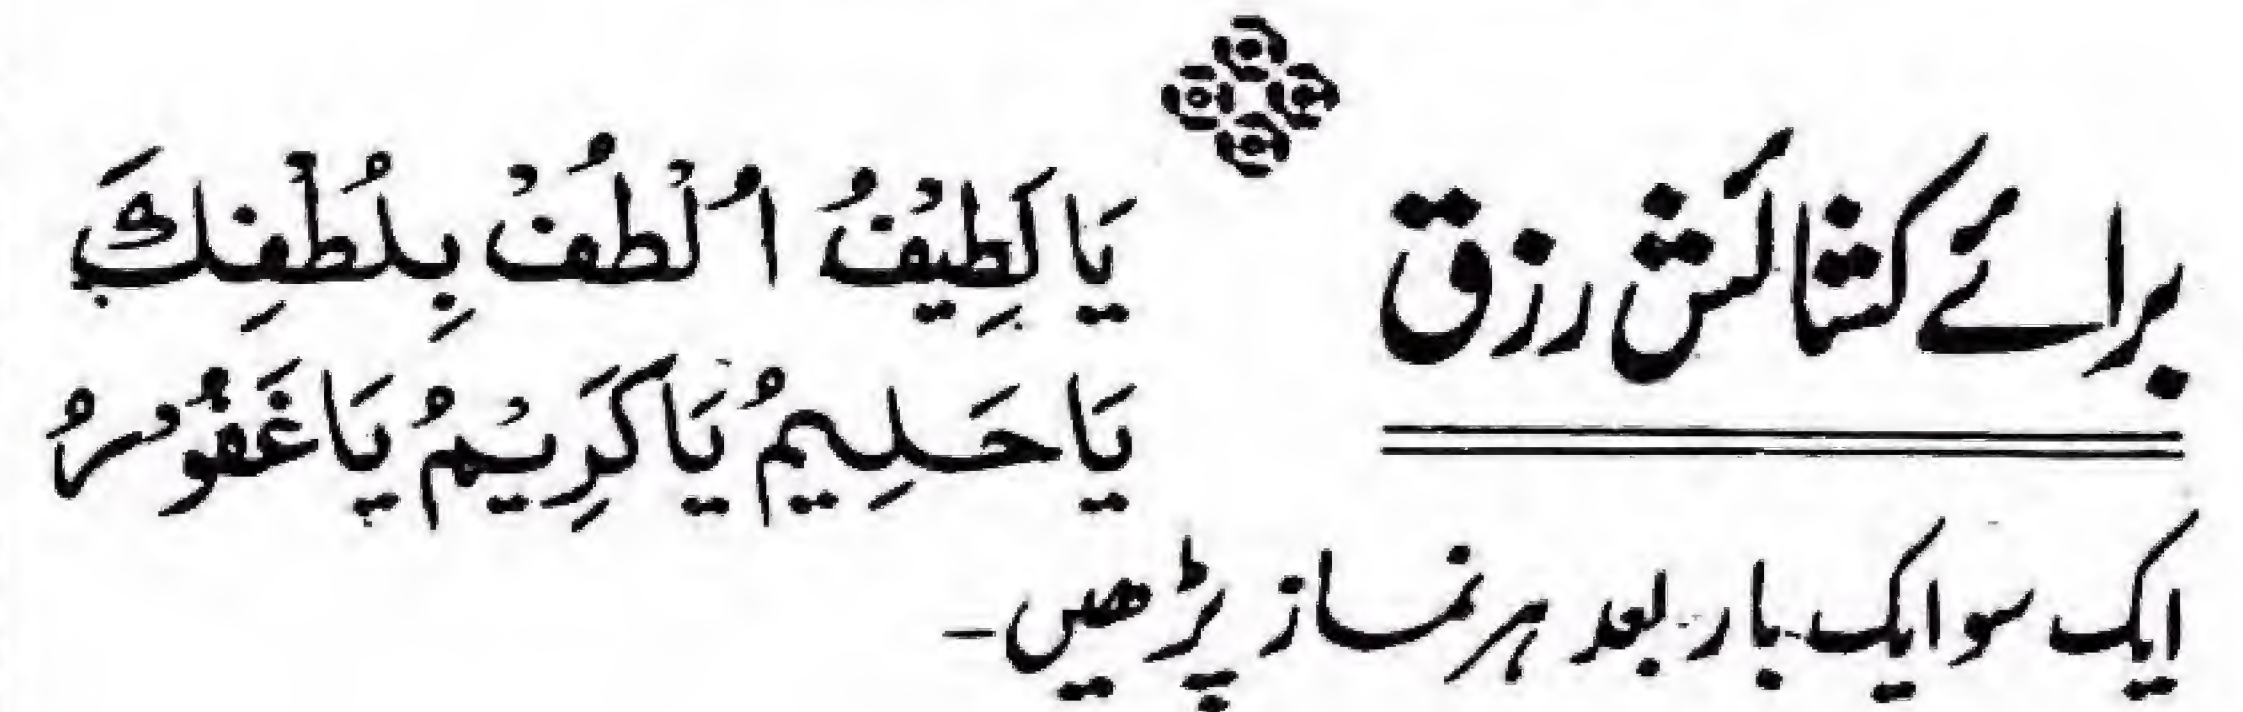 برائے کشائش رزق
يَا لَطِيْفُ اُلْطُفْ بِلُطْفِكَ
يَا حَلِيمُ يَا كَرِيْمُ يَا غَفُوْرُ
ایک سو ایک بار بعد ہر نماز پڑھیں۔